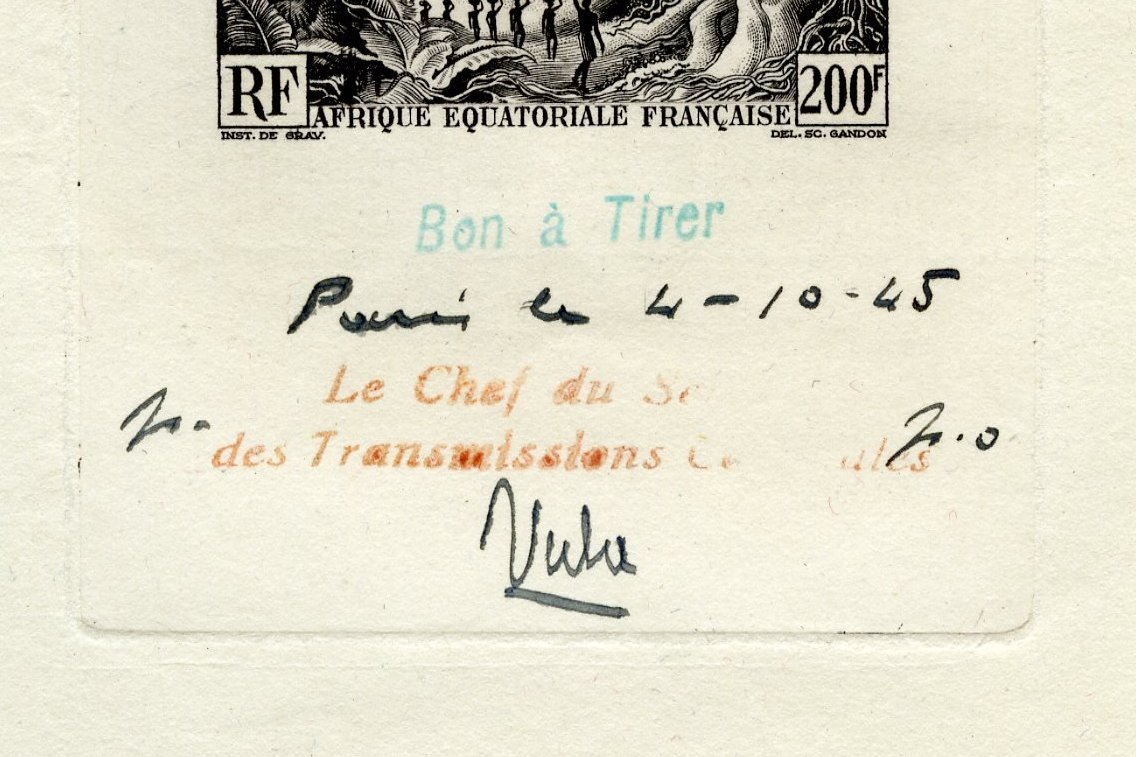 RF
200F
AFRIQUE EQUATORIALE FRANÇAISE
INST. DE GRAV.
DEL. SC. GANDON
Bon à Tirer
Paris le 4-10-45
Le Chef du
des Transmissions
p.o